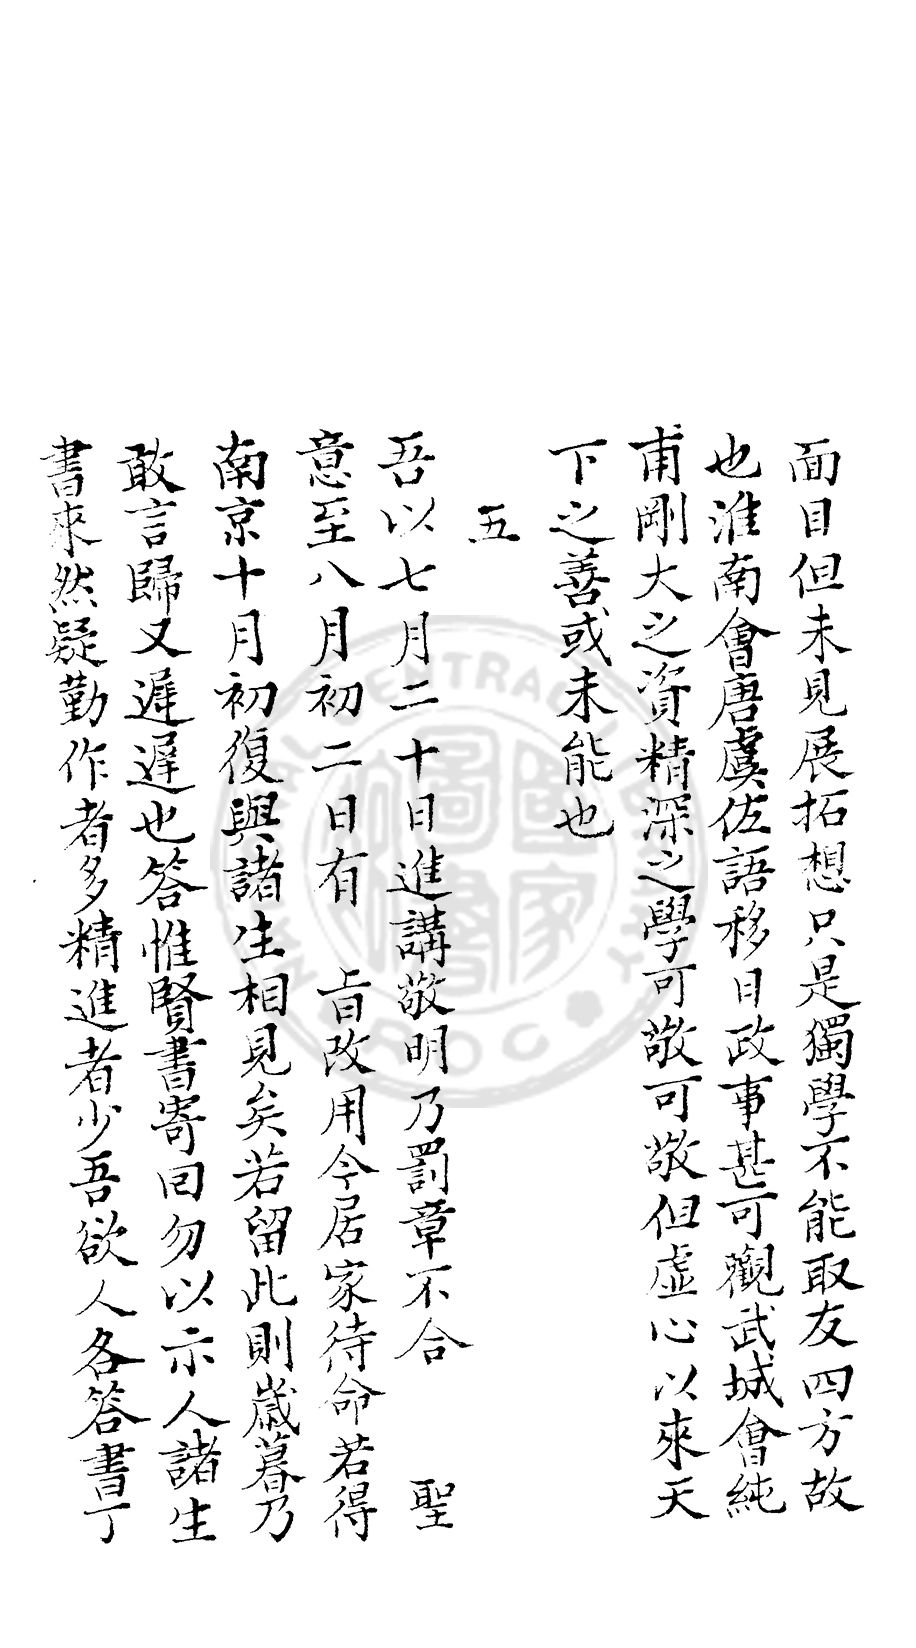 面目但未見展拓想只是獨學不能取友四方故
也淮南會唐虞佐語移日政事甚可觀武城會純
甫剛大之資精深之學可敬可敬但虛心以來天
下之善或未能也
五
吾以七月二十日進講敬明乃罰章不合　聖
意至八月初二日有　旨改用今居家待命若得
南京十月初復與諸生相見矣若留此則歲暮乃
敢言歸又遲遲也答惟賢書寄回勿以示人諸生
書來然疑勤作者多精進者少吾欲人各答書丁